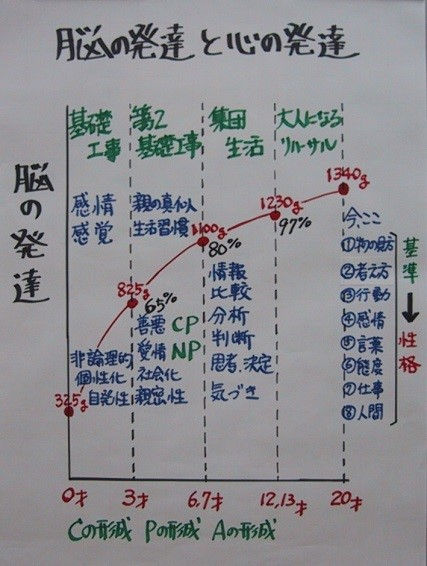 脳の発達と心の発達
脳の発達
基礎
工事
第2
基礎工事
集団
生活
大人になる
リハーサル
感情
感覚
親の真似
生活習慣
1100g
80%
1230g
97%
1340g
今、ここ
①物の見方
②考え方
③行動
④感情
⑤言葉
⑥態度
⑦仕事
⑧人間
基準
↓
性格
825g
65%
善悪 CP
愛情 NP
社会化
親密性
情報
比較
分析
判断
思考、決定
気づき
非論理的
個性化
自発性
325g
0才 3才 6,7才 12,13才 20才
Cの形成 Pの形成 Aの形成